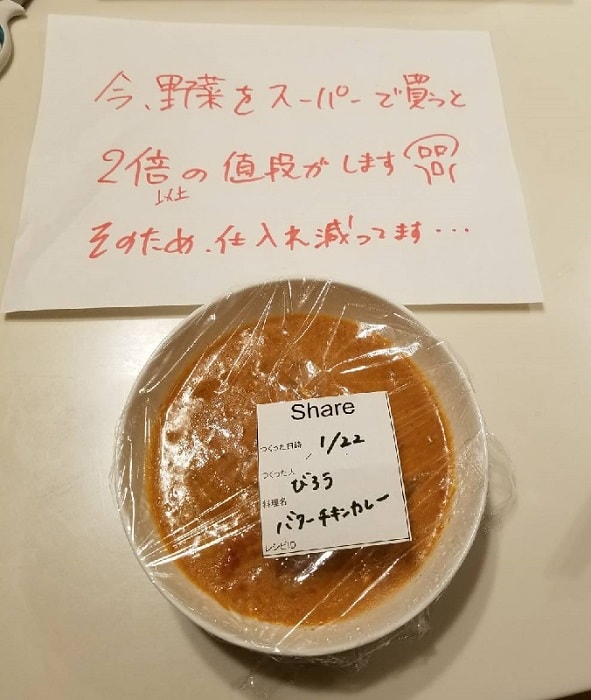 今、野菜をスーパーで買うと
2倍の値段がします
以上
そのため、仕入れ減ってます…
Share
つくった日時 1/22
つくった人 びろう
料理名 バターチキンカレー
レシピID